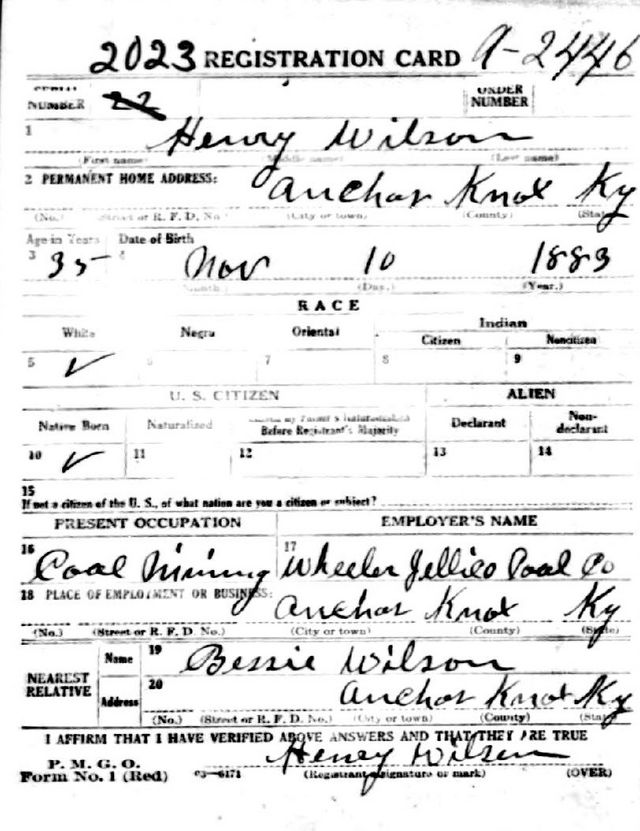 2023 REGISTRATION CARD A-2446
SERIAL NUMBER 22 ORDER NUMBER
1 Henry Wilson
(First name) (Middle name) (Last name)
2 PERMANENT HOME ADDRESS: Anchor Knox Ky
(No.) (Street or R. F. D. No.) (City or town) (County) (State)
Age in Years Date of Birth
3 35 4 Nov 10 1883
(Month.) (Day.) (Year.)
RACE
White Negro Oriental Indian
Citizen Noncitizen
5 ✓ 6 7 8 9
U. S. CITIZEN ALIEN
Native Born Naturalized Citizen by Father's Naturalization Before Registrant's Majority Declarant Non-declarant
10 ✓ 11 12 13 14
15
If not a citizen of the U. S., of what nation are you a citizen or subject?
PRESENT OCCUPATION EMPLOYER'S NAME
16 Coal Mining 17 Wheeler Jellico Coal Co
18 PLACE OF EMPLOYMENT OR BUSINESS: Anchor Knox Ky
(No.) (Street or R. F. D. No.) (City or town) (County) (State)
NEAREST RELATIVE Name 19 Bessie Wilson
Address 20 Anchor Knox Ky
(No.) (Street or R. F. D. No.) (City or town) (County) (State)
I AFFIRM THAT I HAVE VERIFIED ABOVE ANSWERS AND THAT THEY ARE TRUE
P. M. G. O.
Form No. 1 (Red) 03—6171 Henry Wilson
(Registrant's signature or mark) (OVER)